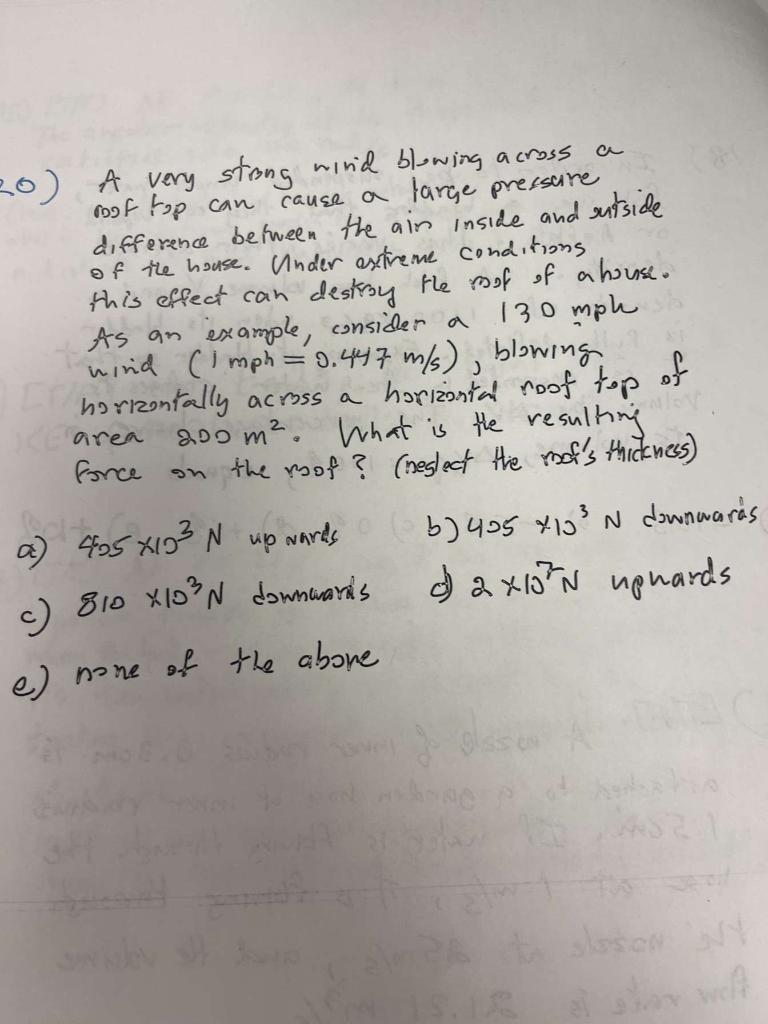 20) A very strong wind blowing across a
roof top can cause a large pressure
difference between the air inside and outside
of the house. Under extreme conditions
this effect can destroy the roof of a house.
As an example, consider a 130 mph
wind (1 mph = 0.447 m/s), blowing
horizontally across a horizontal roof top of
area 200 m². What is the resulting
force on the roof? (neglect the roof's thickness)
a) 405 × 10³ N upwards b) 405 × 10³ N downwards
c) 810 × 10³ N downwards d) 2 × 10⁷ N upwards
e) none of the above